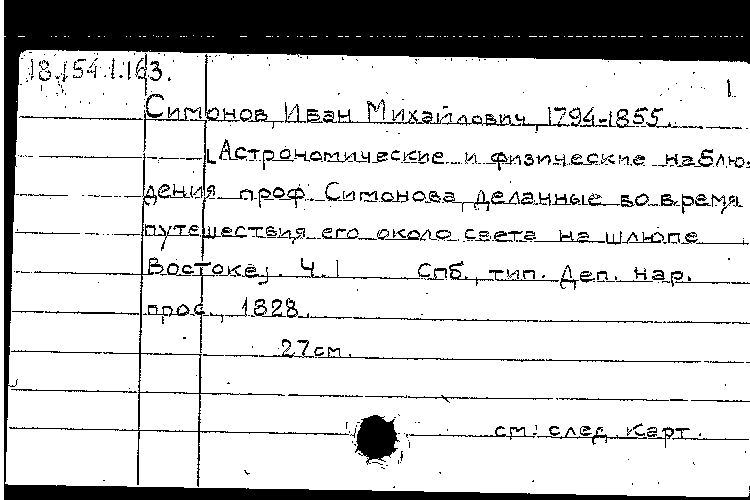 18.154.1.163.
1
Симонов, Иван Михайлович, 1794-1855.
[Астрономические и физические наблю-
дения проф. Симонова, деланные во время
путешествия его около света на шлюпе
Востоке]. Ч. 1 Спб., тип. Деп. нар.
прос., 1828.
27 см.
см. след. карт.